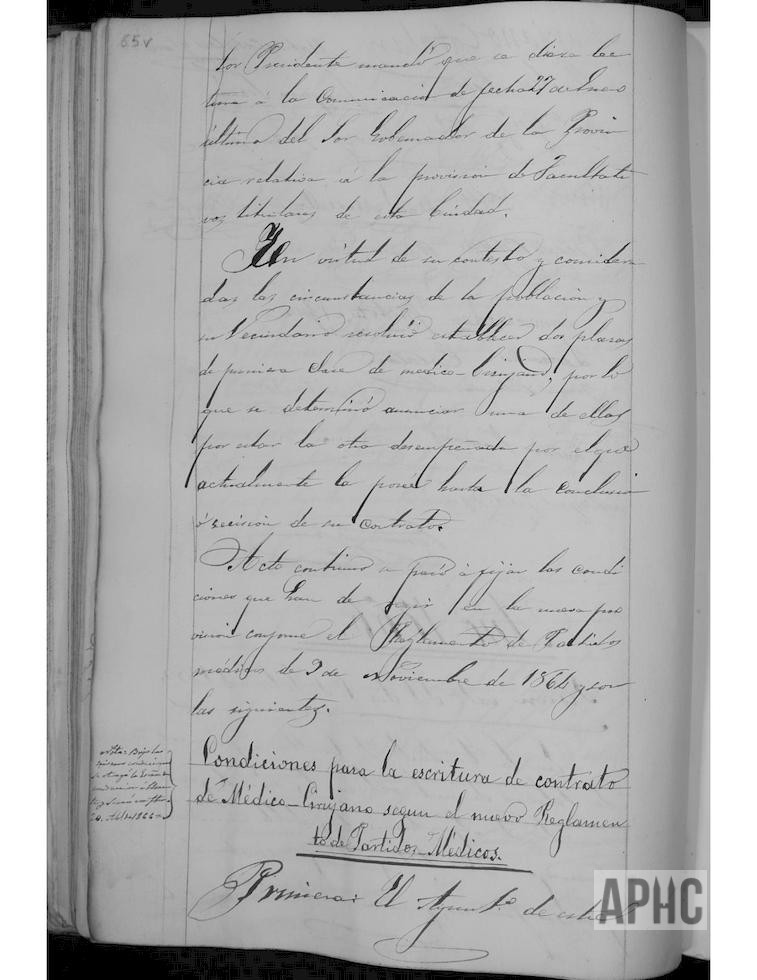 65v
tor Presidente mandó que se diera lec
tura á la Comunicacion de fecha 27 de Enero
último del Sor Gobernador de la Provin
cia relativa á la provision de Facultati
vos titulares de esta Ciudad.
En virtud de su contesto y considera
das las circunstancias de la poblacion y
su Vecindario resolvió establecer dos plazas
de primera clase de medico-Cirujano, por lo
que se determinó anunciar una de ellas
por estar la otra desempeñada por el que
actualmente la poseé hasta la conclusion
ó recision de su contrato.
Acto continuo se pasó á fijar las condi
ciones que han de regir en la nueva pro
vision conforme el Reglamento de Partidos
médicos de 9 de Noviembre de 1864 y son
las siguientes.
Nota: Bajo las
mismas condiciones
se otorgó la
20 1866
Condiciones para la escritura de contrato
de Médico-Cirujano segun el nuevo Reglamen
to de Partidos Médicos.
Primera: El Ayunto. de esta
APHC